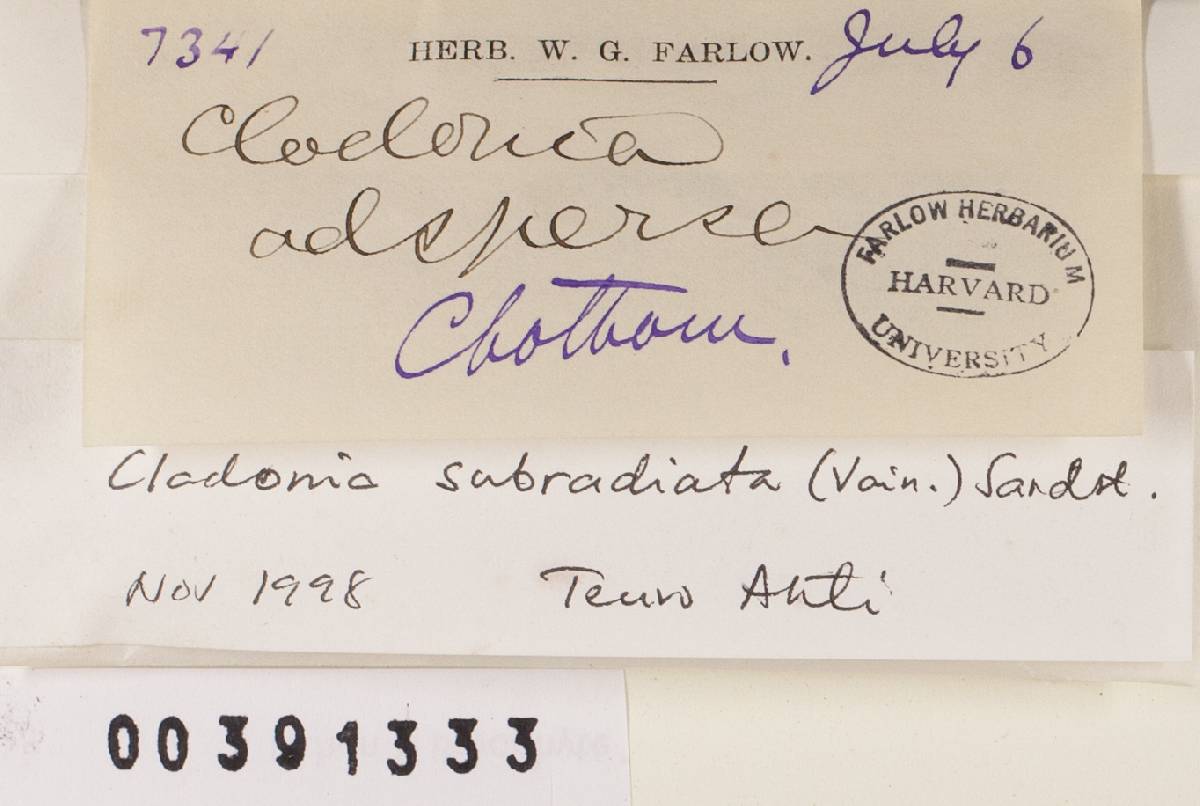 7341 HERB. W. G. FARLOW. July 6
Cladonia
adspersa
Chatham.
FARLOW HERBARIUM
HARVARD
UNIVERSITY
Cladonia subradiata (Vain.) Sandst.
Nov 1998 Teuvo Ahti
00391333